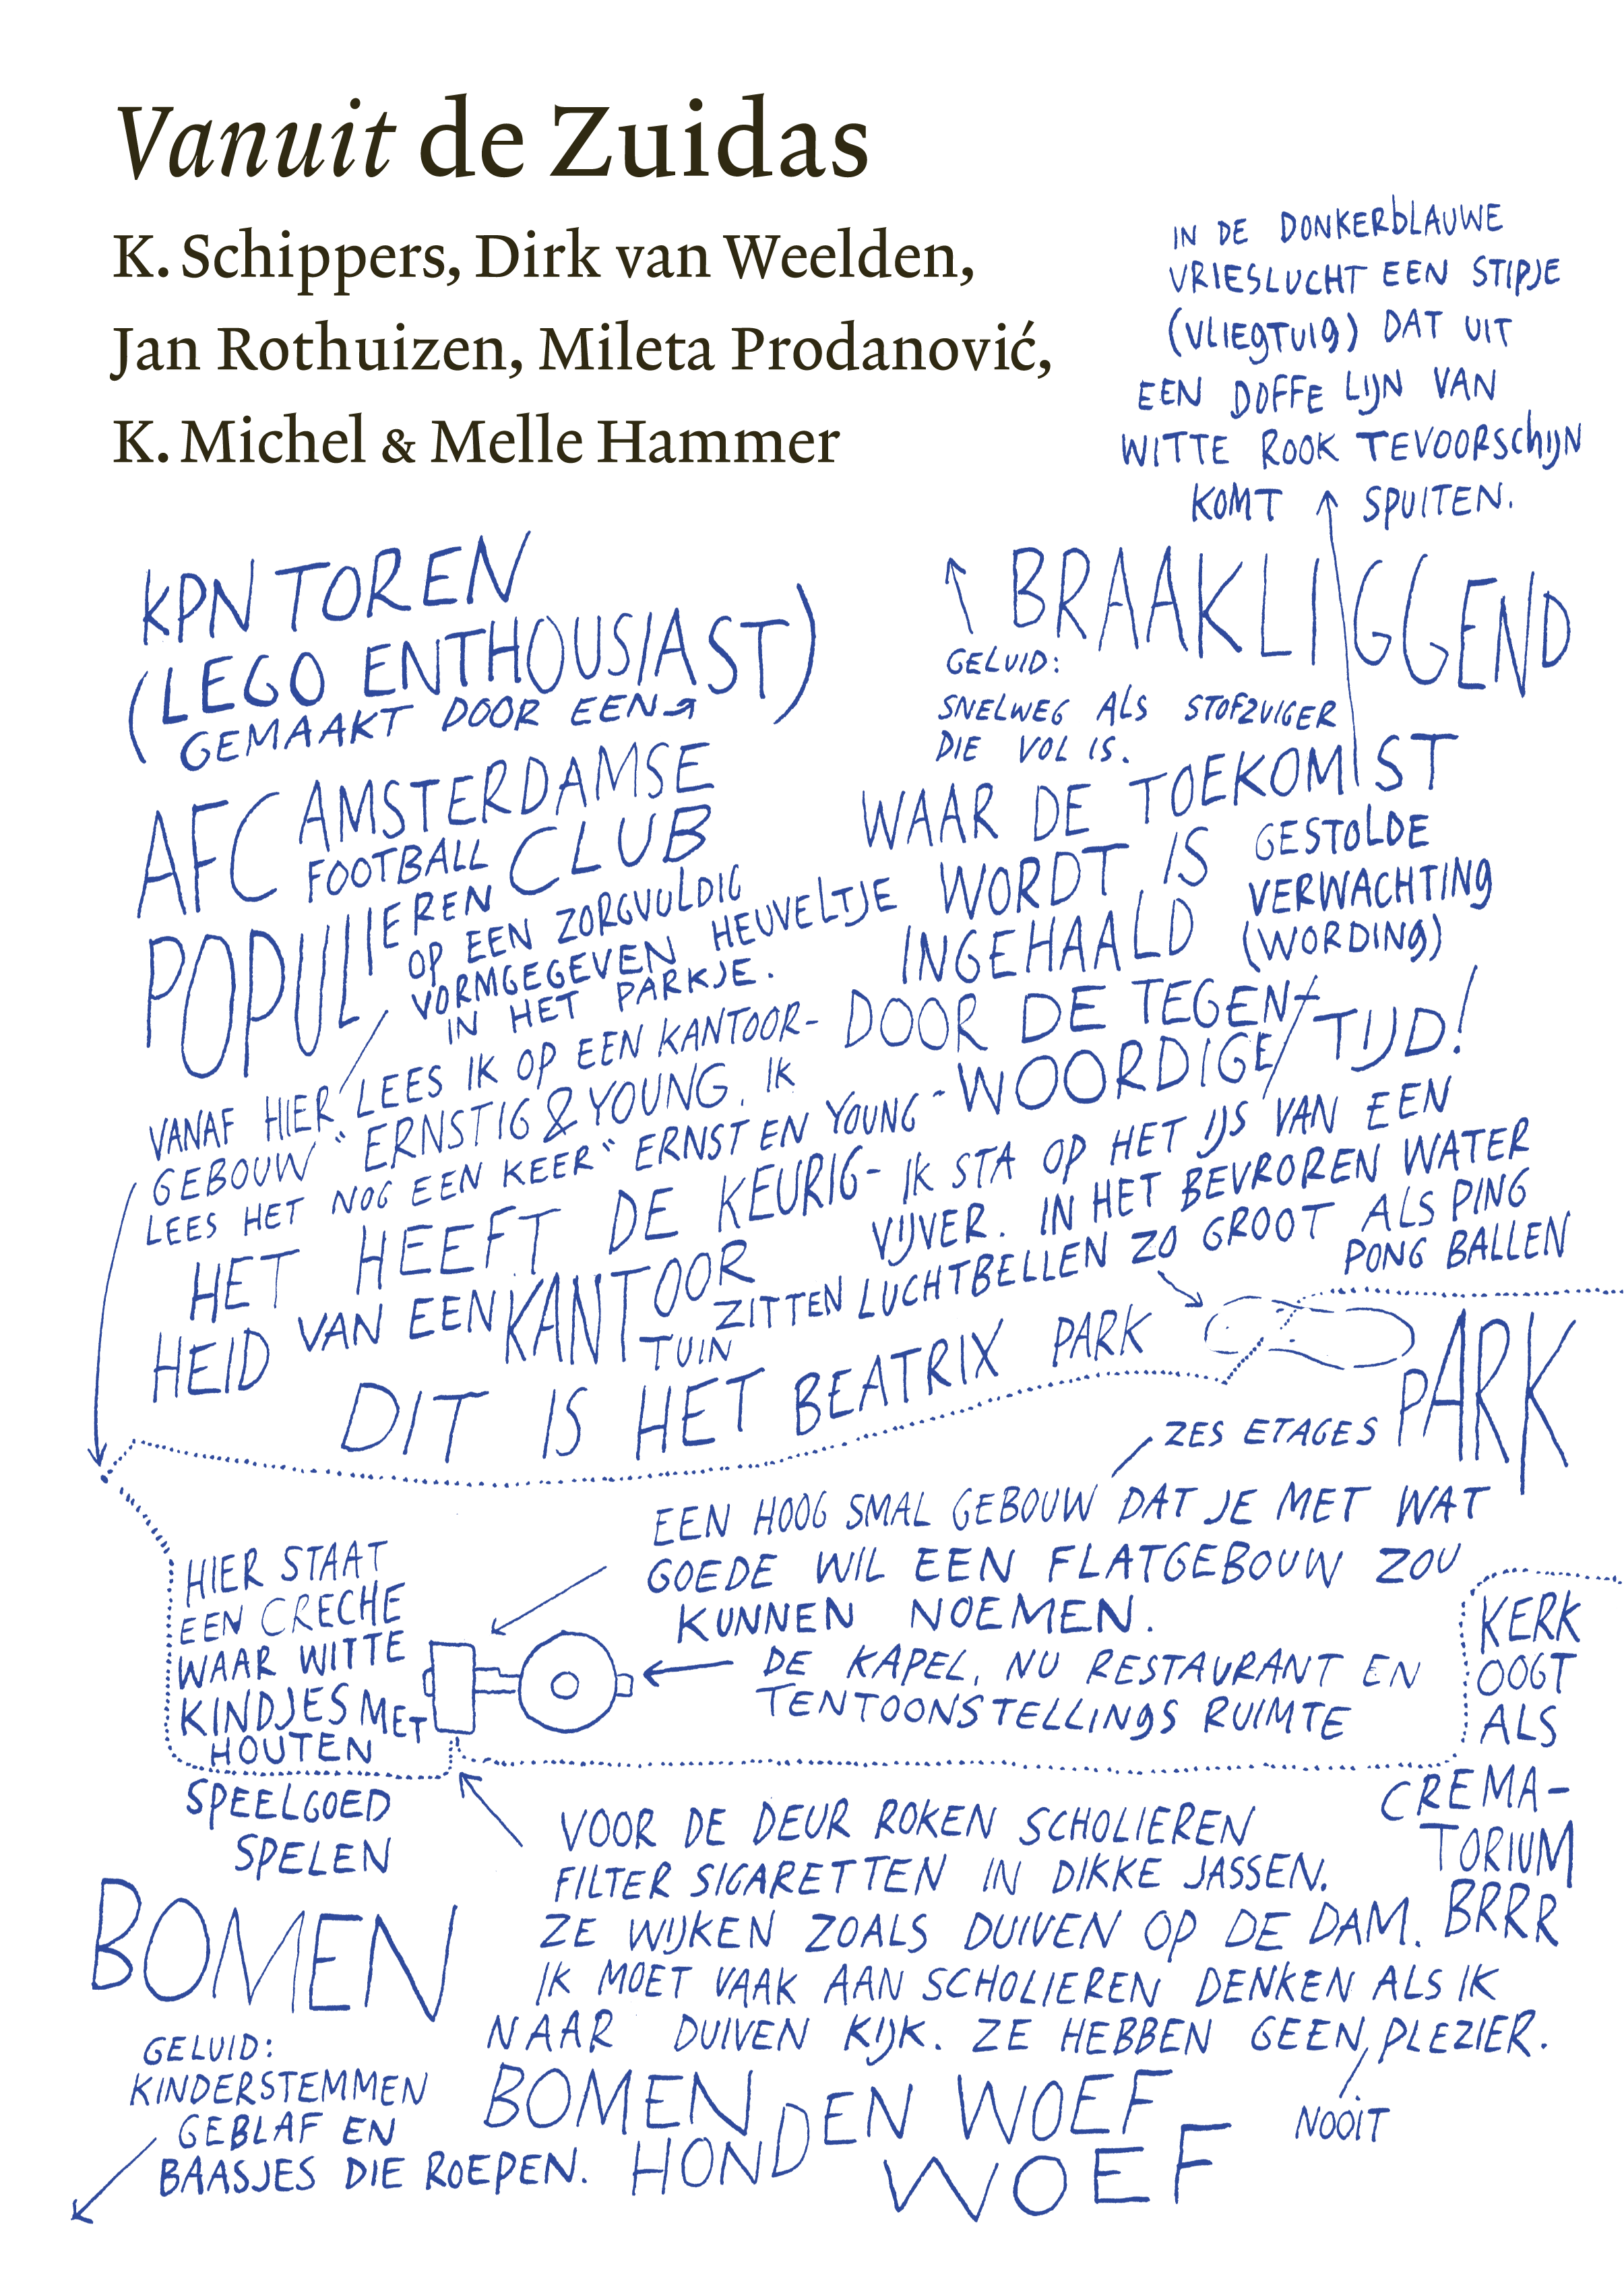 Vanuit de Zuidas
K. Schippers, Dirk van Weelden,
Jan Rothuizen, Mileta Prodanović,
K. Michel & Melle Hammer
IN DE DONKERBLAUWE
VRIESLUCHT EEN STIPJE
(VLIEGTUIG) DAT UIT
EEN DOFFE LIJN VAN
WITTE ROOK TEVOORSCHIJN
KOMT SPUITEN.
KPN TOREN
(LEGO ENTHOUSIAST)
GEMAAKT DOOR EEN
BRAAKLIGGEND
GELUID:
SNELWEG ALS STOFZUIGER
DIE VOL IS.
AFC AMSTERDAMSE
FOOTBALL CLUB
POPULIEREN
OP EEN ZORGVULDIG
VORMGEGEVEN HEUVELTJE
IN HET PARKJE.
WAAR DE TOEKOMST
WORDT IS
INGEHAALD
DOOR DE TEGEN-
WOORDIGE TIJD!
GESTOLDE
VERWACHTING
(WORDING)
VANAF HIER LEES IK OP EEN KANTOOR-
GEBOUW "ERNSTIG & YOUNG. IK
LEES HET NOG EEN KEER "ERNST EN YOUNG"
HET HEEFT DE KEURIG-
HEID VAN EEN KANTOOR
TUIN
IK STA OP HET IJS VAN EEN
VIJVER. IN HET BEVROREN WATER
ZITTEN LUCHTBELLEN ZO GROOT ALS PING
PONG BALLEN
DIT IS HET BEATRIX PARK
PARK
ZES ETAGES
EEN HOOG SMAL GEBOUW DAT JE MET WAT
GOEDE WIL EEN FLATGEBOUW ZOU
KUNNEN NOEMEN.
HIER STAAT
EEN CRECHE
WAAR WITTE
KINDJES MET
HOUTEN
SPEELGOED
SPELEN
DE KAPEL, NU RESTAURANT EN
TENTOONSTELLINGS RUIMTE
KERK
OOGT
ALS
CREMA-
TORIUM
BRRR
VOOR DE DEUR ROKEN SCHOLIEREN
FILTER SIGARETTEN IN DIKKE JASSEN.
ZE WIJKEN ZOALS DUIVEN OP DE DAM.
IK MOET VAAK AAN SCHOLIEREN DENKEN ALS IK
NAAR DUIVEN KIJK. ZE HEBBEN GEEN PLEZIER.
NOOIT
BOMEN
GELUID:
KINDERSTEMMEN
GEBLAF EN
BAASJES DIE ROEPEN.
BOMEN
HONDEN WOEF
WOEF